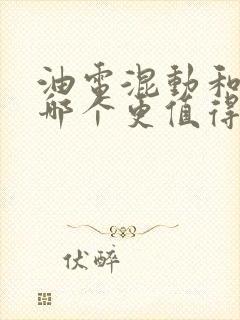 油电混动和
哪个更值得
伏醉